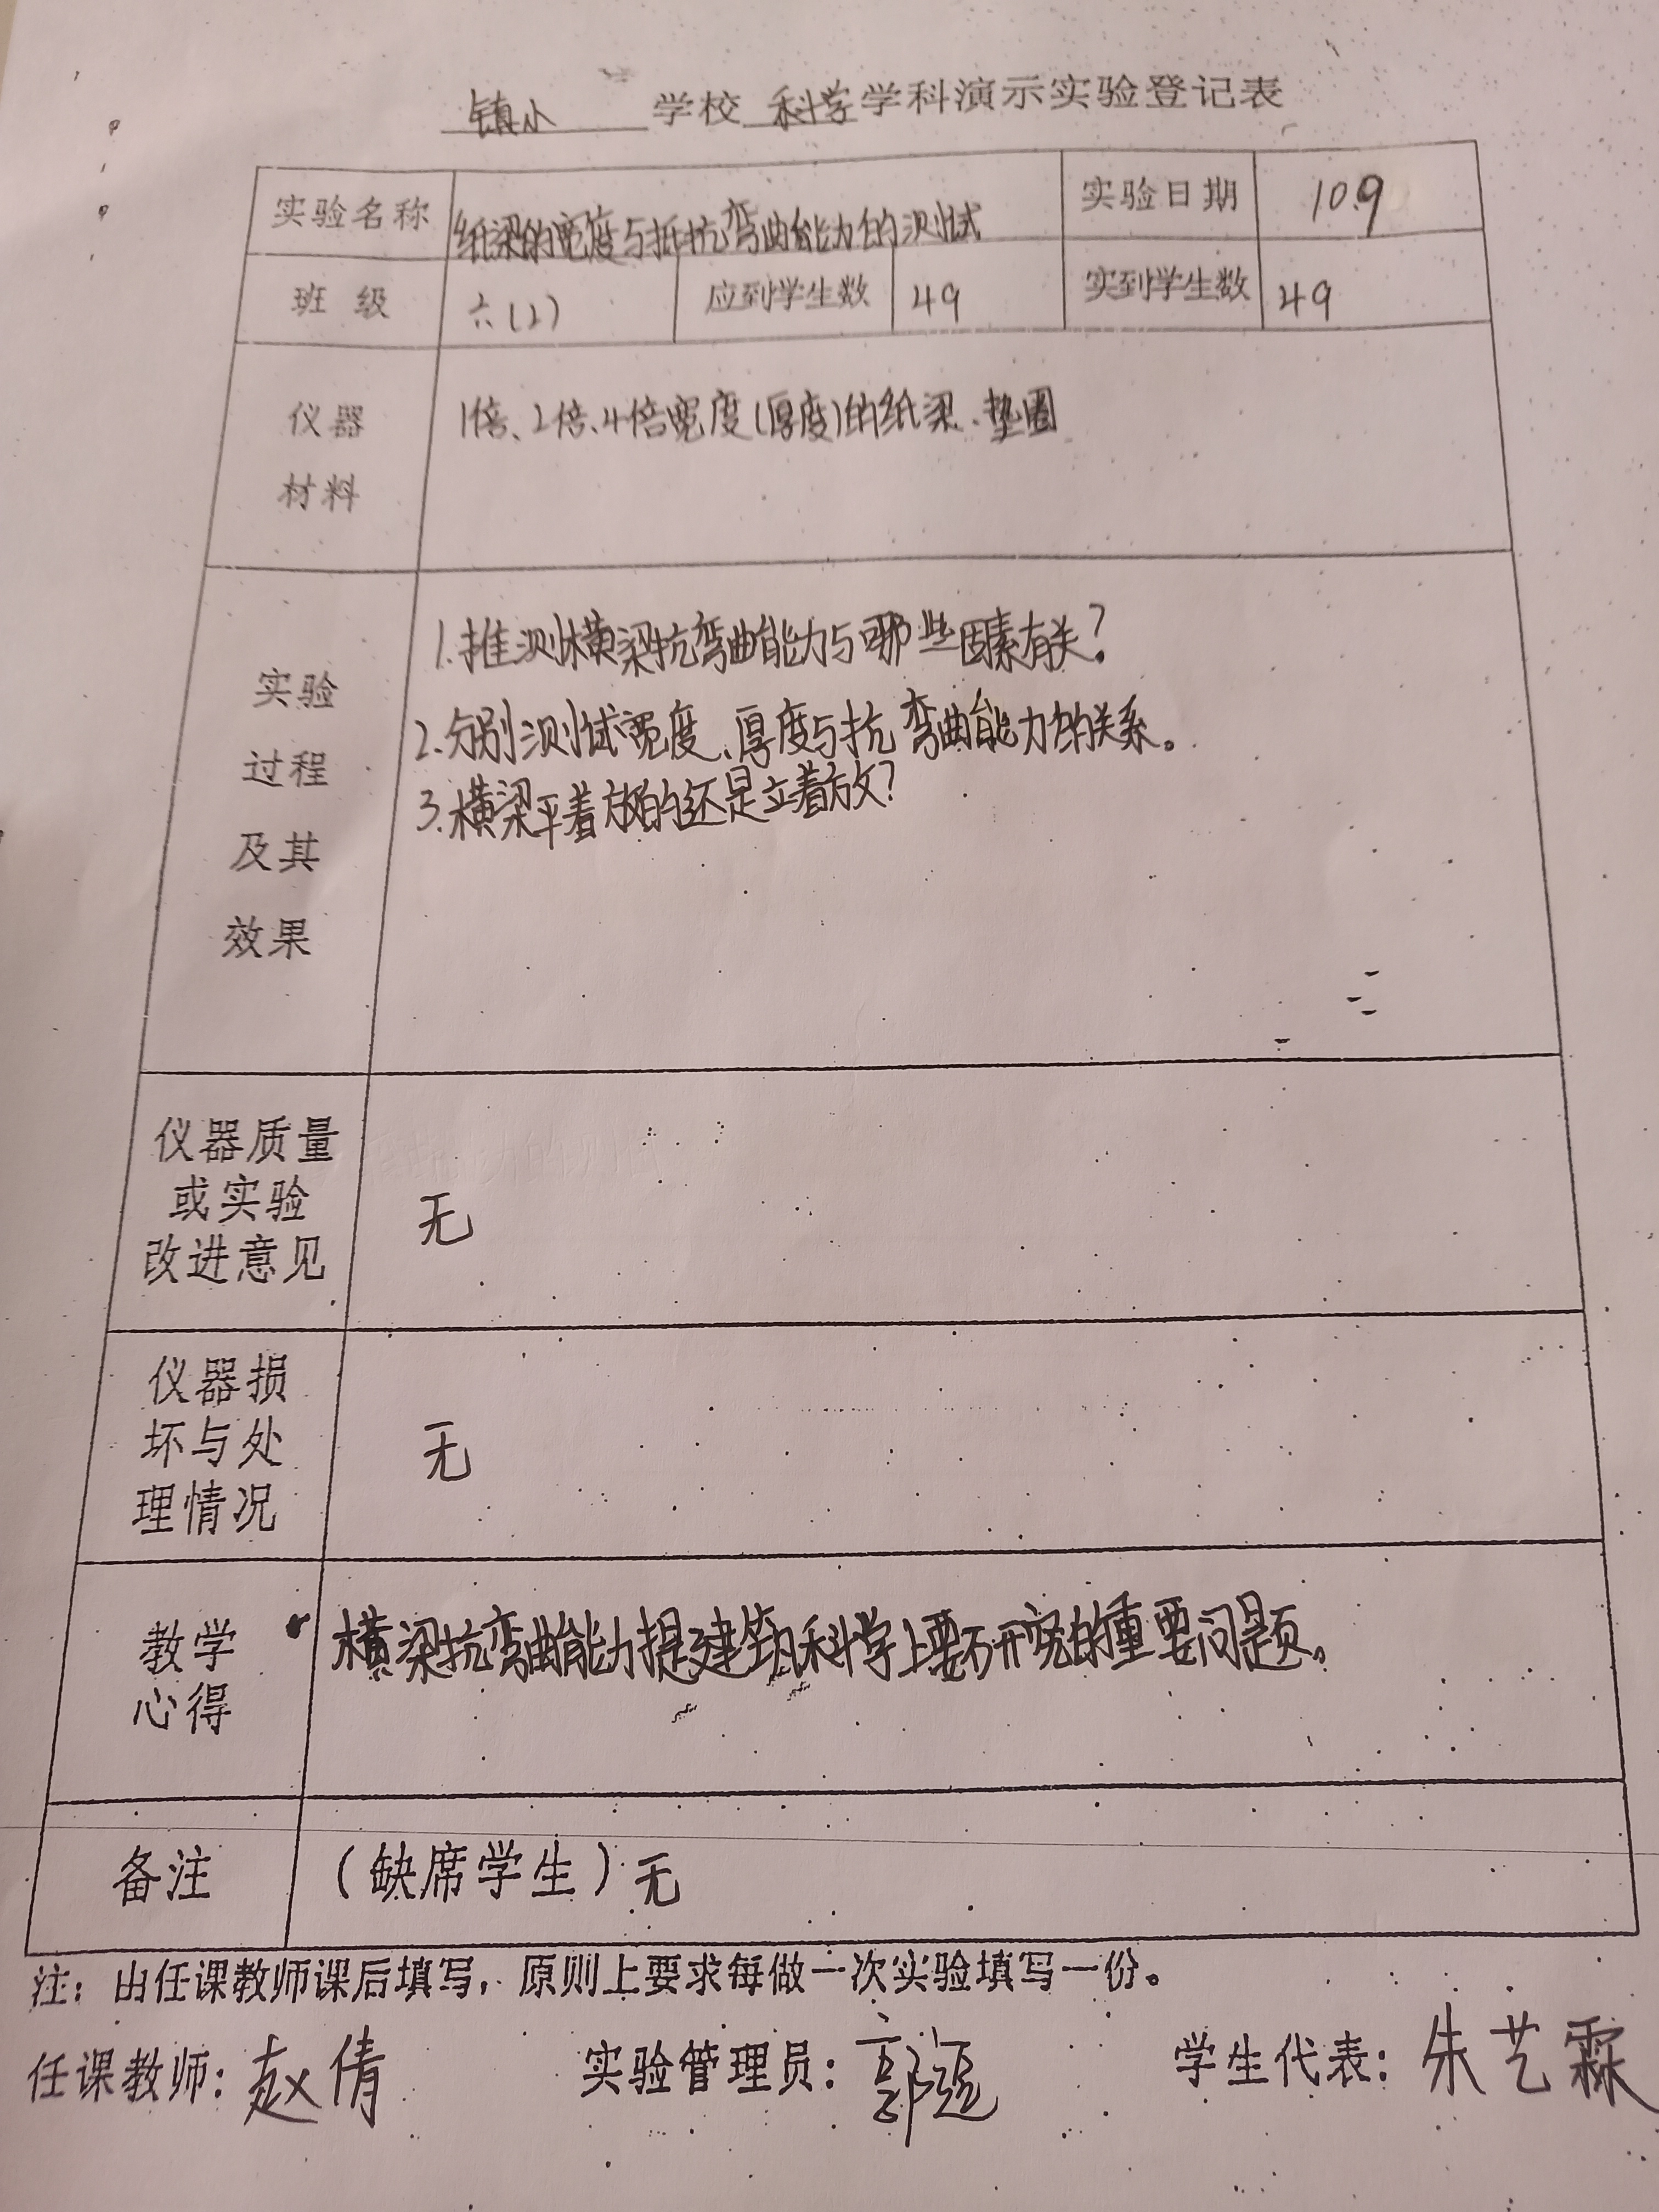 镇小 学校 科学 学科演示实验登记表
实验名称 纸梁的宽度与抵抗弯曲能力的测试 实验日期 10.9
班 级 六(2) 应到学生数 49 实到学生数 49
仪器
材料
1倍、2倍、4倍宽度(厚度)的纸梁、垫圈
实验
过程
及其
效果
1.推测横梁抗弯曲能力与哪些因素有关?
2.分别测试宽度、厚度与抗弯曲能力的关系。
3.横梁平着放的还是立着放?
仪器质量
或实验
改进意见
无
仪器损
坏与处
理情况
无
教学
心得
横梁抗弯曲能力提建筑科学上要研究的重要问题。
备注 (缺席学生)无
注:由任课教师课后填写,原则上要求每做一次实验填写一份。
任课教师:赵倩 实验管理员:郭 学生代表:朱艺霖